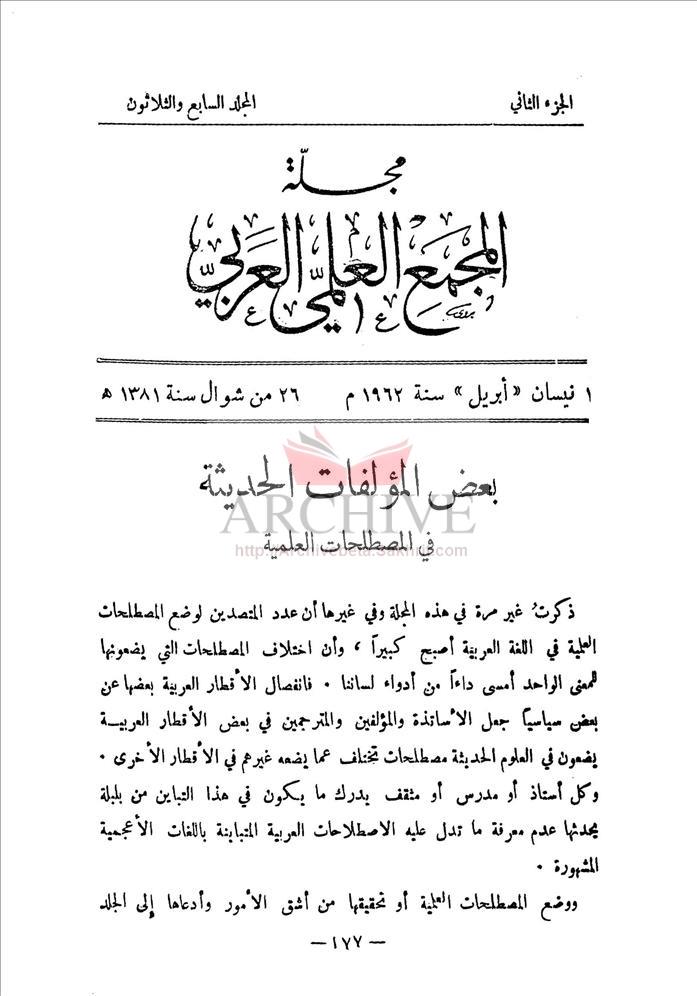 الجزء الثاني
المجلد السابع والثلاثون
مجلة
المجمع العلمي العربي
١ نيسان «أبريل» سنة ١٩٦٢ م
٢٦ من شوال سنة ١٣٨١ ه
بعض المؤلفات الحديثة
ARCHIVE
في المصطلحات العلمية
http://Archivebeta.Sakhrit.com
ذكرتُ غير مرة في هذه المجلة وفي غيرها أن عدد المتصدين لوضع المصطلحات
العلمية في اللغة العربية أصبح كبيراً ، وأن اختلاف المصطلحات التي يضعونها
للمعنى الواحد أمسى داءاً من أدواء لساننا . فانفصال الأقطار العربية بعضها عن
بعض سياسياً جعل الأساتذة والمؤلفين والمترجمين في بعض الأقطار العربيـة
يضعون في العلوم الحديثة مصطلحات تختلف عما يضعه غيرهم في الأقطار الأخرى .
وكل أستاذ أو مدرس أو مثقف يدرك ما يكون في هذا التباين من بلبلة
يحدثها عدم معرفة ما تدل عليه الاصطلاحات العربية المتباينة باللغات الأعجمية
المشهورة .
ووضع المصطلحات العلمية أو تحقيقها من أشق الأمور وأدعاها إلى الجلد
— ١٧٧ —